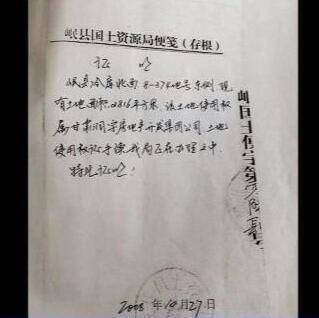 岷县国土资源局便笺（存根）
证 明
岷县冷库北面8-37地号东侧 现
有土地面积2816平方米 该土地使用权
属甘肃润宇房地产开发集团公司 土地
使用权证手续我局正在办理之中
特此证明！
2008年10月27日